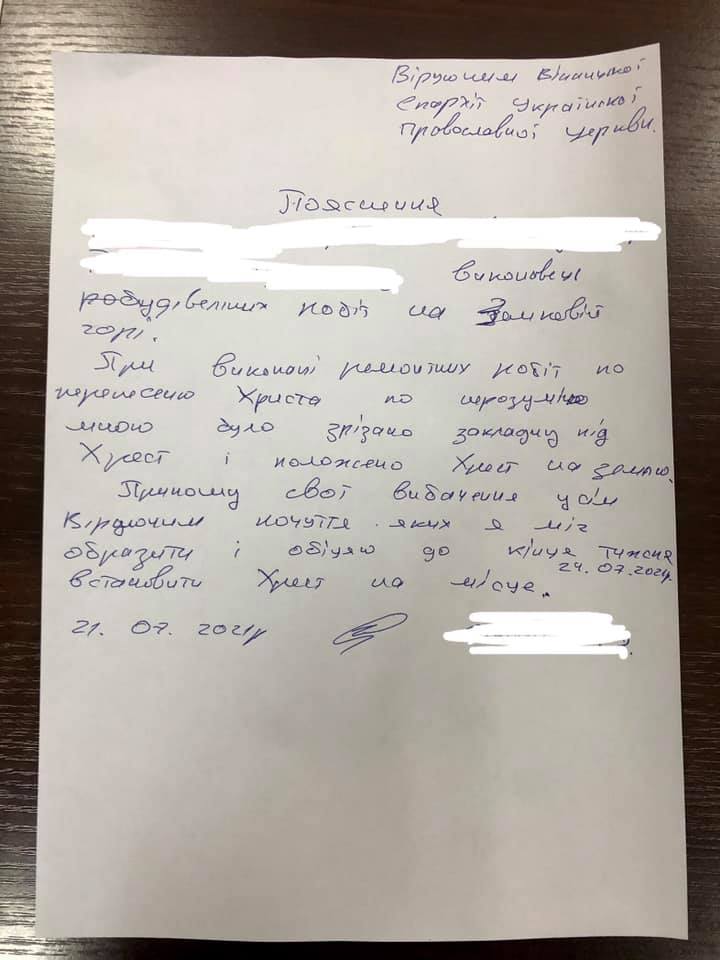 Віруючим Вінницької
Єпархії Української
Православної церкви.
Пояснення
виконовець
будівельних робіт на Замковій
горі.
При виконані ремонтних робіт по
перенесеню Христа по нерозуміню
мною було зрізано закладну під
Хрест і положено Хрест на землю.
Приношу свої вибачення усім
Віруючим почуття яких я міг
образити і обіцяю до кінця тижня
24.07.2021р.
встановити Хрест на місце.
21. 07. 2021р